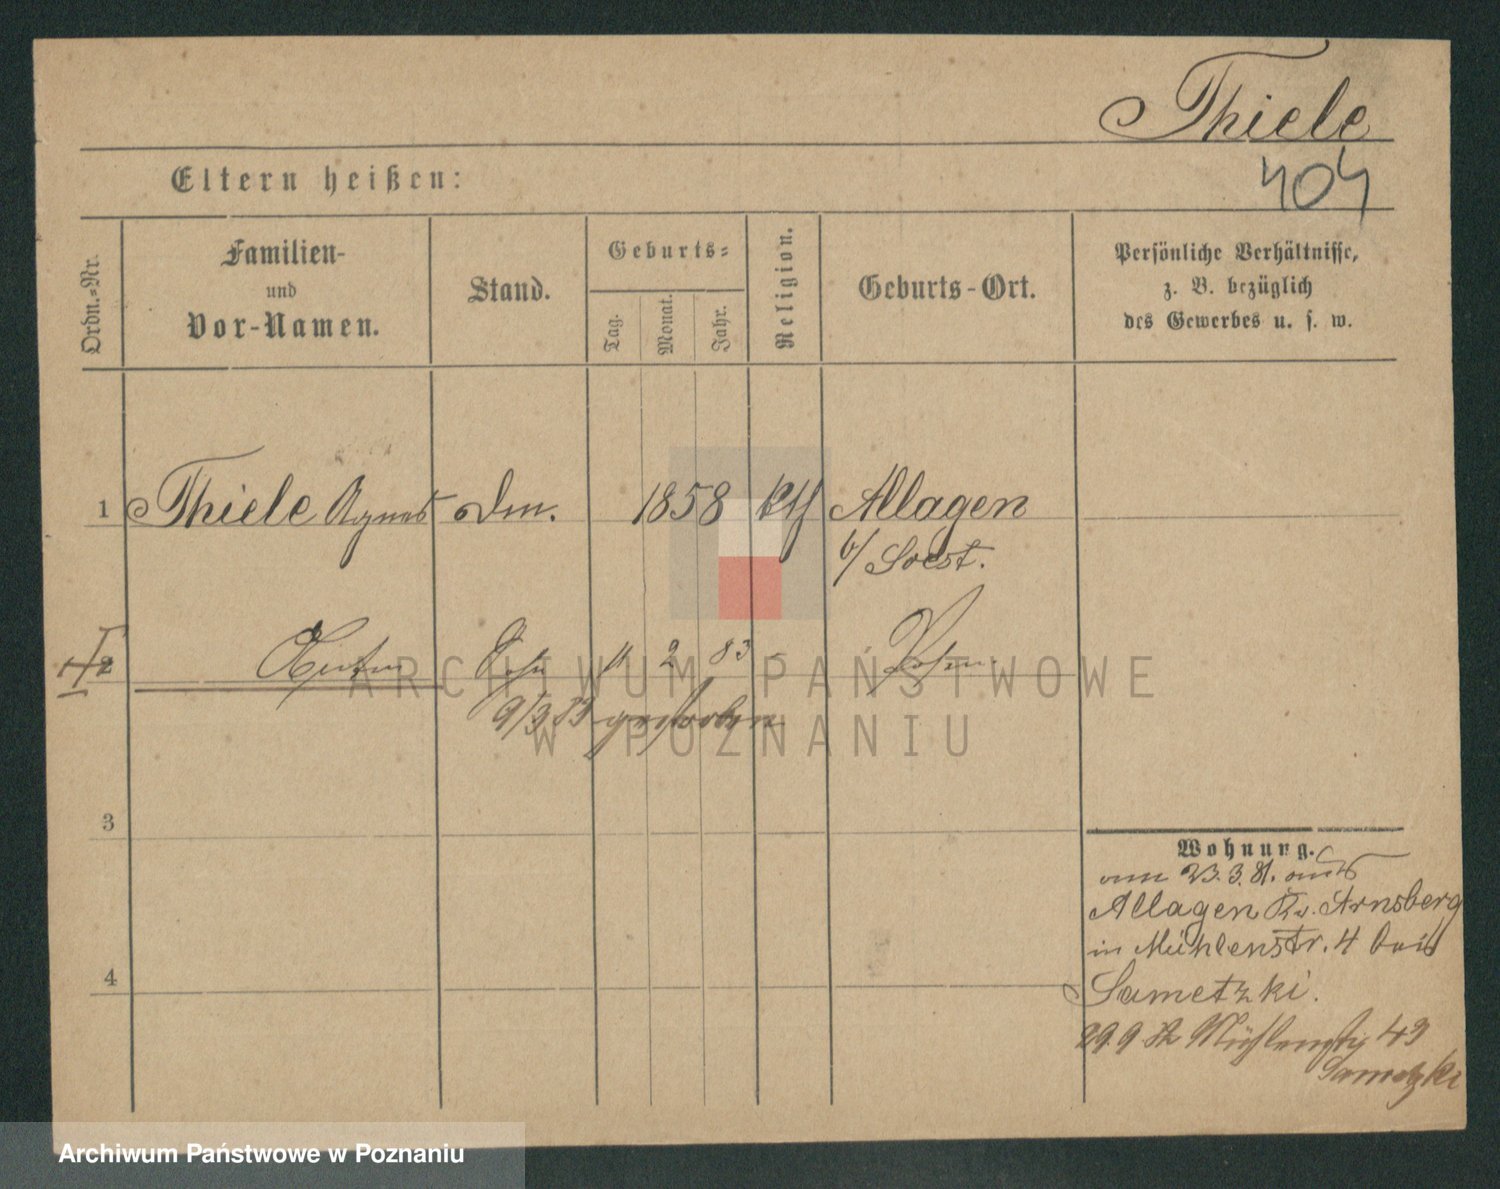 Thiele
404
Eltern heißen:
Ordn.-Nr.
Familien-
und
Vor-Namen.
Stand.
Geburts-
Tag.
Monat.
Jahr.
Religion.
Geburts-Ort.
Persönliche Verhältnisse,
z. B. bezüglich
des Gewerbes u. s. w.
1 Thiele Agnes 1858 kth Allagen
b/ Soest.
2 Sohn 11 2 83 Posen
9/3 83 gestorben
3
4
Wohnung.
23.3.81. aus
Allagen Kr. Arnsberg
in Mühlenstr. 4 bei
Sametzki.
29.9 Mühlenstr 43
Sametzki
ARCHIWUM PAŃSTWOWE
W POZNANIU
Archiwum Państwowe w Poznaniu